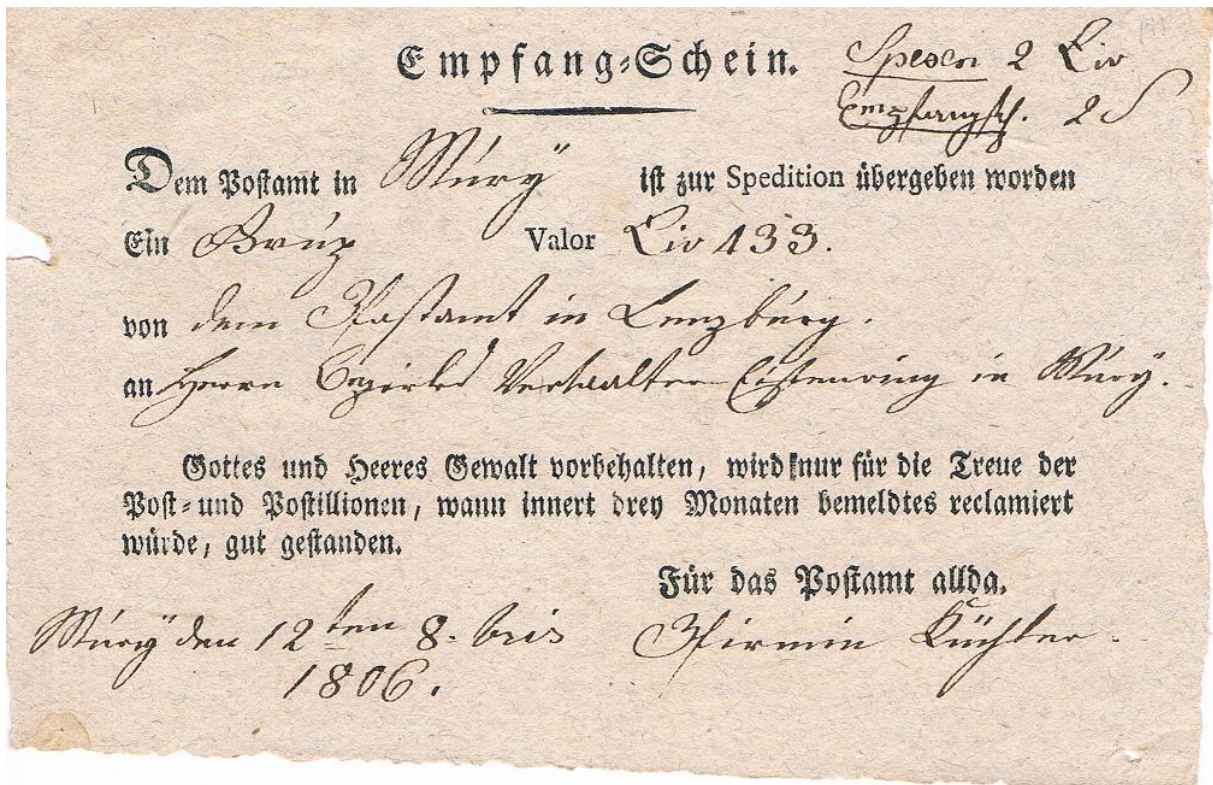 Empfang-Schein.
Spesen 2 Liv
Empfangsch. 2 S
Dem Postamt in Mury ist zur Spedition übergeben worden
Ein Valor Liv 133.
von dem Postamt in Lenzburg.
an Herrn Bezirks Verwalter in Mury.
Gottes und Heeres Gewalt vorbehalten, wird nur für die Treue der
Post- und Postillionen, wann innert drey Monaten bemeldtes reclamiert
würde, gut gestanden.
Für das Postamt allda.
Mury den 12ten 8. bris
1806.
Pirmin Küchler.